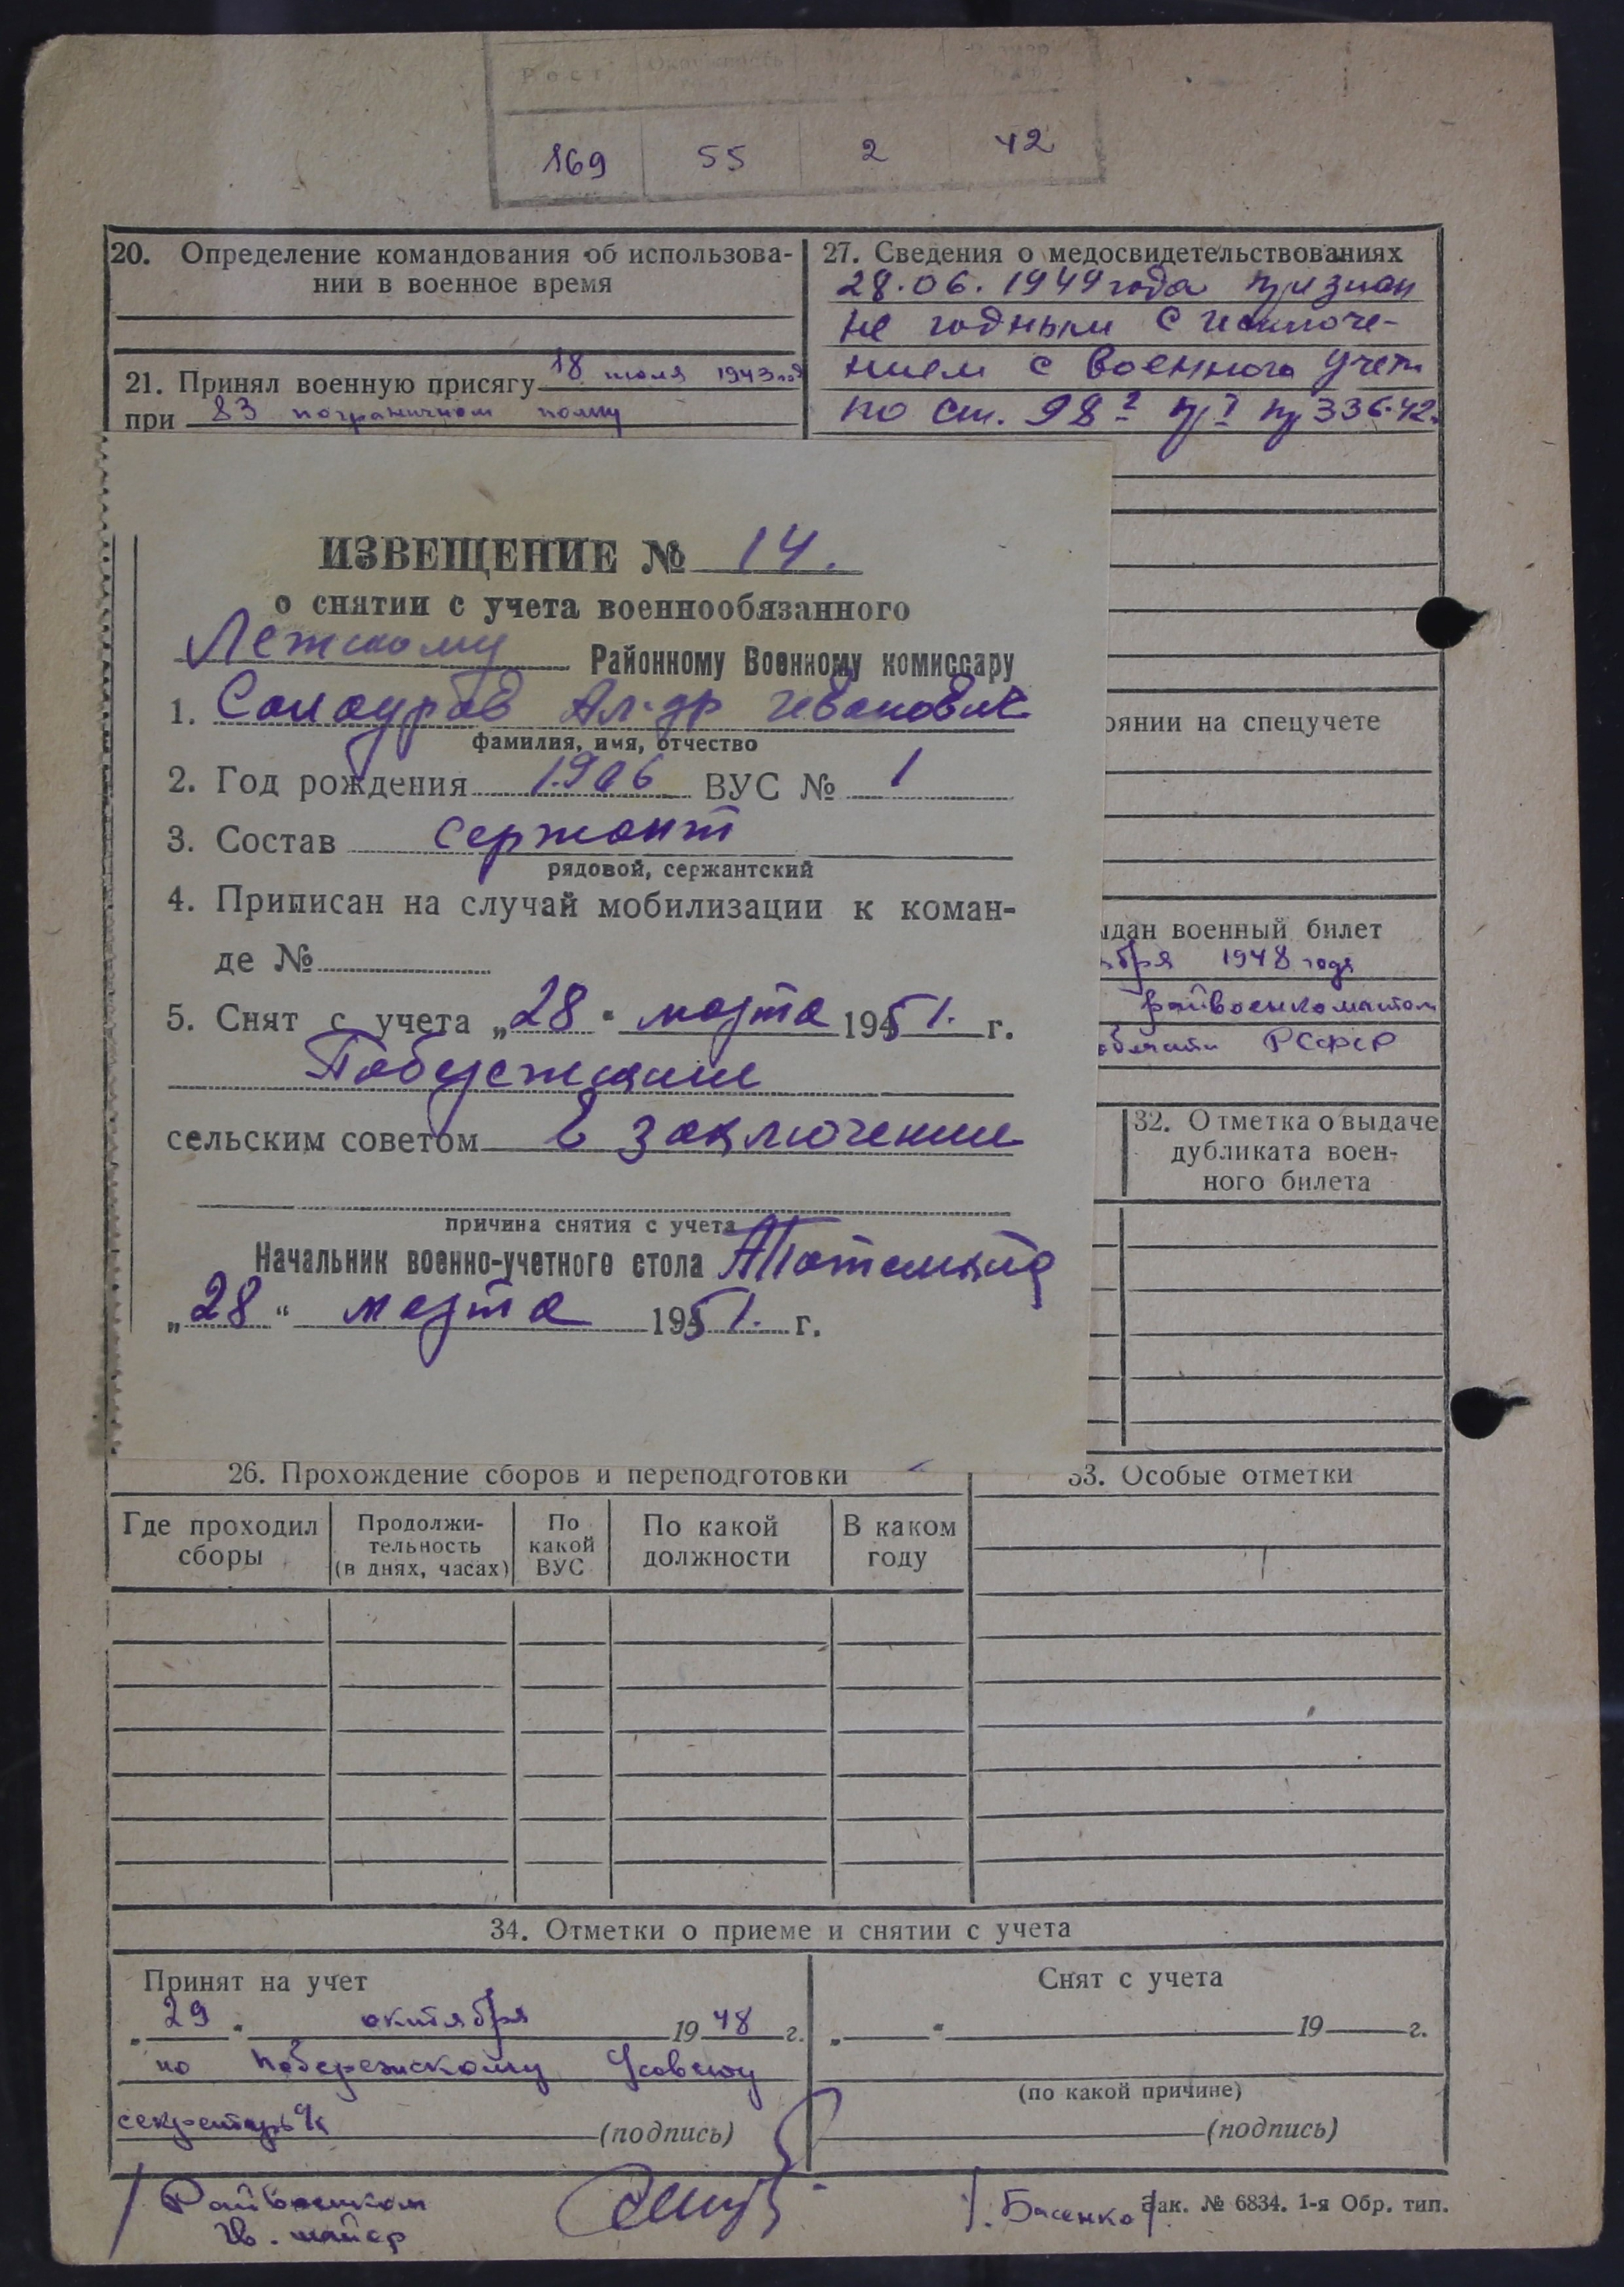 Рост
169 55 2 42
20. Определение командования об использова-
нии в военное время
21. Принял военную присягу 18 июля 1943 год
при 83 пограничном полку
27. Сведения о медосвидетельствованиях
28.06.1949 года признан
не годным с исключе-
нием с военного учета
по ст. 98
336-42
ИЗВЕЩЕНИЕ № 14.
о снятии с учета военнообязанного
Летскому Районному Военному комиссару
1. Солоуров Ал-др Иванович
фамилия, имя, отчество
2. Год рождения 1906 ВУС № 1
3. Состав сержант
рядовой, сержантский
4. Приписан на случай мобилизации к коман-
де №
5. Снят с учета „28" марта 1951. г.
сельским советом В заключении
причина снятия с учета
Начальник военно-учетного стола
„28" марта 1951. г.
оянии на спецучете
ыдан военный билет
бря 1948 года
райвоенкоматом
области РСФСР
32. Отметка о выдаче
дубликата воен-
ного билета
26. Прохождение сборов и переподготовки
Где проходил сборы
Продолжи-
тельность
(в днях, часах)
По какой ВУС
По какой должности
В каком году
33. Особые отметки
34. Отметки о приеме и снятии с учета
Принят на учет
„29" октября 1948 г.
по Побережскому Усовету
секретарь
(подпись)
Снят с учета
„ " 19 г.
(по какой причине)
(подпись)
/ Райвоенком
гв. майор
/. Басенко /.
Зак. № 6834. 1-я Обр. тип.